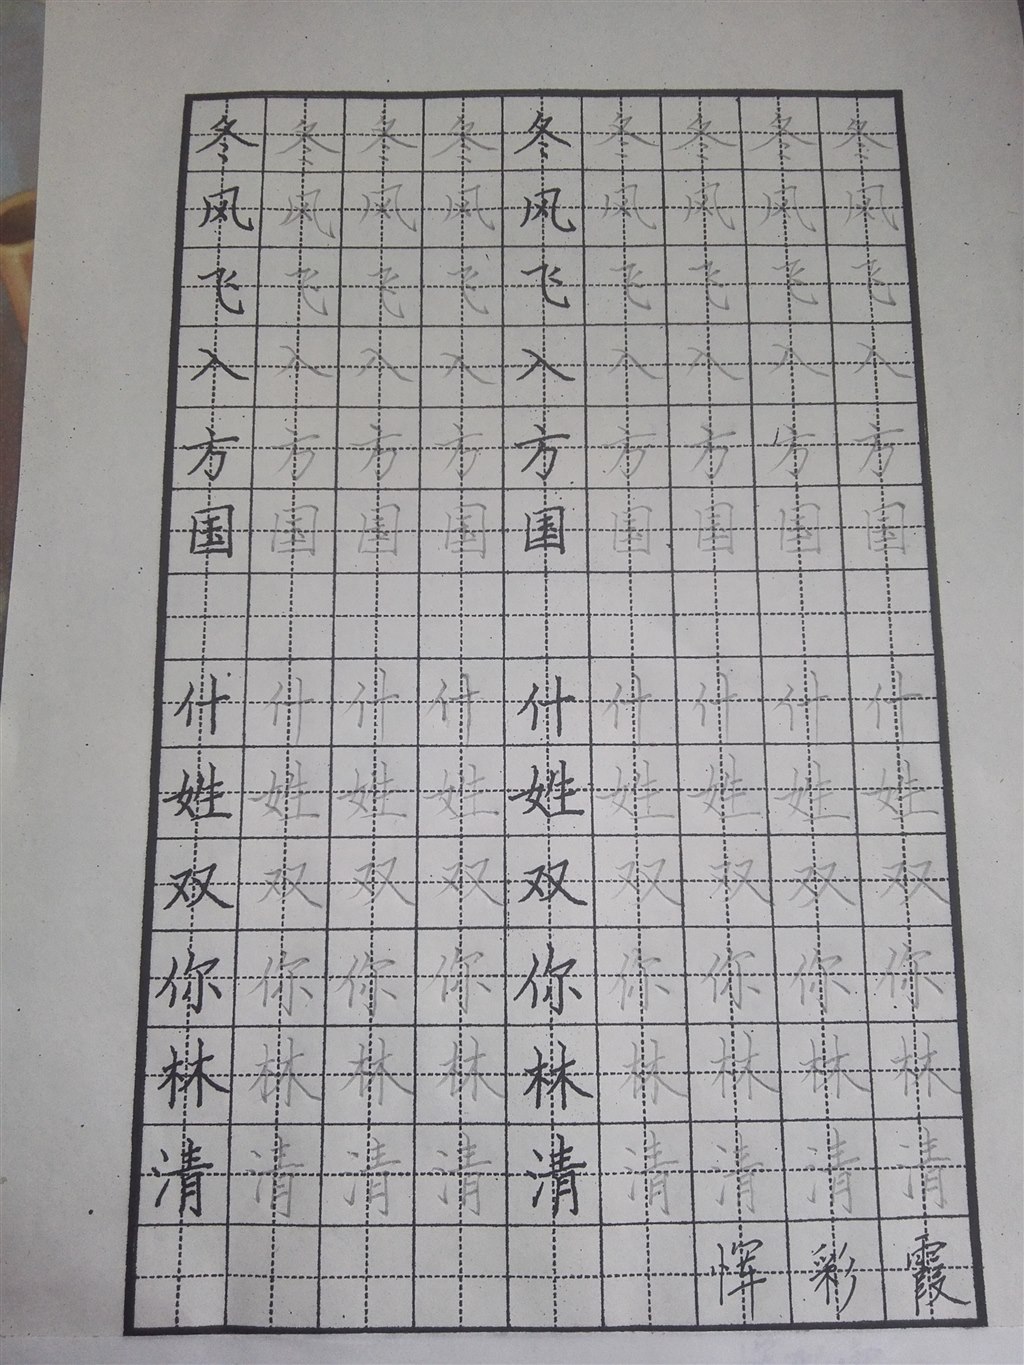 冬冬冬冬冬冬冬冬冬
风风风风风风风风风
飞飞飞飞飞飞飞飞飞
入入入入入入入入入
方方方方方方方方方
国国国国国国国国国
什什什什什什什什什
姓姓姓姓姓姓姓姓姓
双双双双双双双双双
你你你你你你你你你
林林林林林林林林林
清清清清清清清清清
恽彩霞